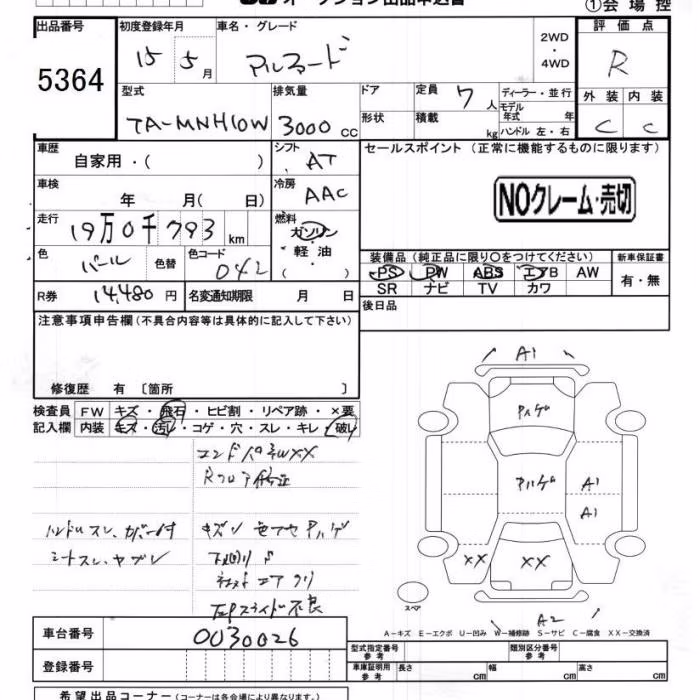 オークション出品申込書
①会場控
出品番号
5364
初度登録年月
15 5月
車名・グレード
アルファード
2WD
・
4WD
評価点
R
型式
TA-MNH10W
排気量
3000 cc
ドア
形状
定員 7 人
積載 kg
ディーラー・並行
モデル年式 年
ハンドル 左・右
外装 内装
C C
車歴
自家用・( )
シフト
AT
セールスポイント (正常に機能するものに限ります)
NOクレーム・売切
車検
年 月( 日)
冷房
AAC
走行
19万0千793 km
燃料
ガソリン
・
軽油
( )
色
パール
色替
色コード
042
装備品(純正品に限り○をつけてください)
PS PW ABS エアB AW
SR ナビ TV カワ
新車保証書
有・無
R券 14,480 円
名変通知期限 月 日
後日品
注意事項申告欄(不具合内容等は具体的に記入して下さい)
修復歴 有〔箇所 〕
検査員
記入欄
FW キズ・飛石・ヒビ割・リペア跡・×要
内装 キズ・汚レ・コゲ・穴・スレ・キレ・破レ
コンドパネルWXX
Rフロア修正
ハンドルスレ、カバー付
シートスレ、ヤブレ
下廻りサ
左Pスライド不良
A1
Pハゲ
Pハゲ
A1
A1
XX
XX
A2
スペア
A-キズ E-エクボ U-凹み W-補修跡 S-サビ C-腐食 XX-交換済
車台番号
0030026
登録番号
型式指定番号
参考
類別区分番号
参考
車庫証明用
参考
長さ cm
幅 cm
高さ cm
希望出品コーナー(コーナーは各会場により異なります。)